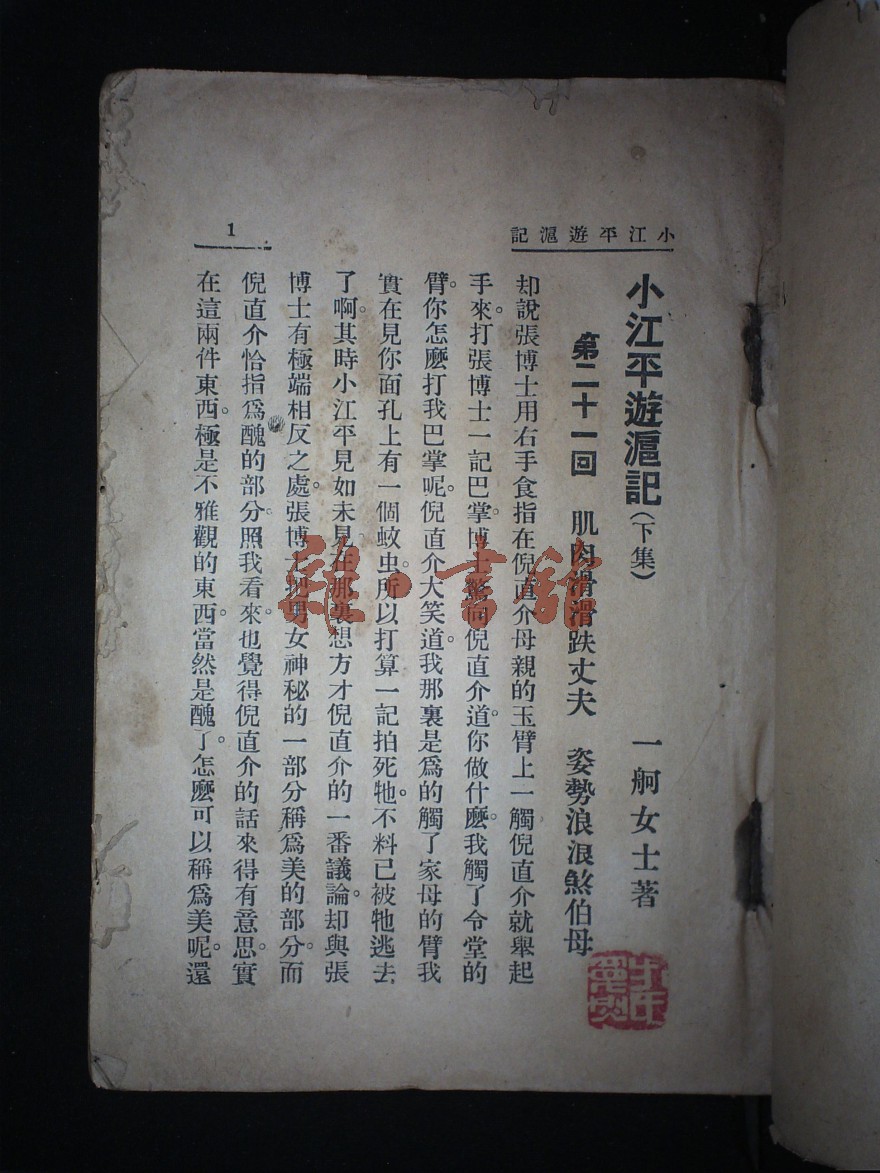 小江平遊滬記
1
小江平遊滬記(下集)
一舸女士著
第二十一回 肌肉滑滑跌丈夫 姿勢浪浪煞伯母
却說張博士用右手食指在倪直介母親的玉臂上一觸倪直介就舉起
手來打張博士一記巴掌。博士驚向倪直介道。你做什麽。我觸了令堂的
臂。你怎麽打我巴掌呢。倪直介大笑道。我那裏是爲的觸了家母的臂我
實在見你面孔上有一個蚊虫。所以打算一記拍死牠。不料已被牠逃去
了啊。其時小江平見如未見。在那裏想方才倪直介的一番議論。却與張
博士有極端相反之處。張博士把男女神秘的一部分稱爲美的部分。而
倪直介恰指爲醜的部分。照我看來。也覺得倪直介的話來得有意思。實
在這兩件東西。極是不雅觀的東西。當然是醜了。怎麽可以稱爲美呢。還
雜·書館